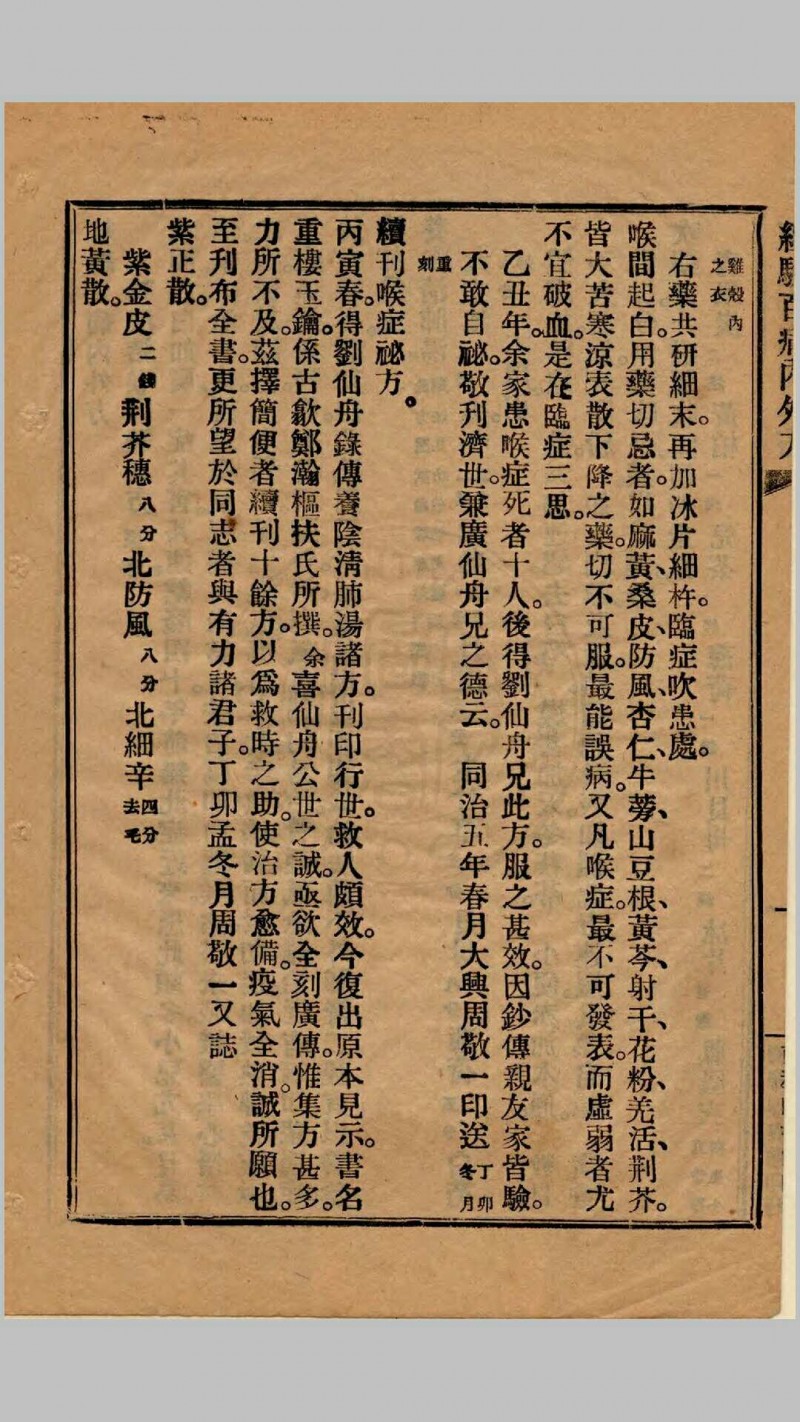 雞殼內
之衣
右藥共研細末。再加冰片細杵。臨症吹患處。
喉間起白。用藥切忌者。如麻黃、桑皮、防風、杏仁、牛蒡、山豆根、黃芩、射干、花粉、羌活、荆芥。
皆大苦寒涼表散下降之藥。切不可服。最能誤病。又凡喉症。最不可發表。而虛弱者尤
不宜破血。是在臨症三思。
乙丑年。余家患喉症死者十人。後得劉仙舟兄此方。服之甚效。因鈔傳親友家皆驗。
不敢自祕。敬刊濟世。兼廣仙舟兄之德云。　同治五年春月大興周敬一印送丁卯冬月
重刻
續刊喉症祕方。
丙寅春。得劉仙舟錄傳養陰淸肺湯諸方。刊印行世。救人頗效。今復出原本見示。書名
重樓玉鑰。係古歙鄭瀚樞扶氏所撰。余喜仙舟公世之誠。亟欲全刻廣傳。惟集方甚多。
力所不及。茲擇簡便者續刊十餘方。以爲救時之助。使治方愈備。疫氣全消。誠所願也。
至刋布全書。更所望於同志者與有力諸君子。丁卯孟冬月周敬一又誌
紫正散。
紫金皮二錢荆芥穗八分北防風八分北細辛四分去毛
地黃散。